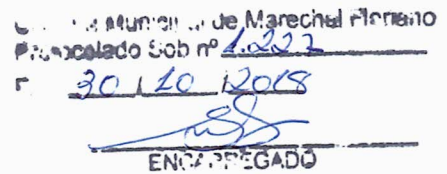 de Marechal Floriano
Protocolado Sob nº 1.227
30 / 10 / 2018
ENCARREGADO